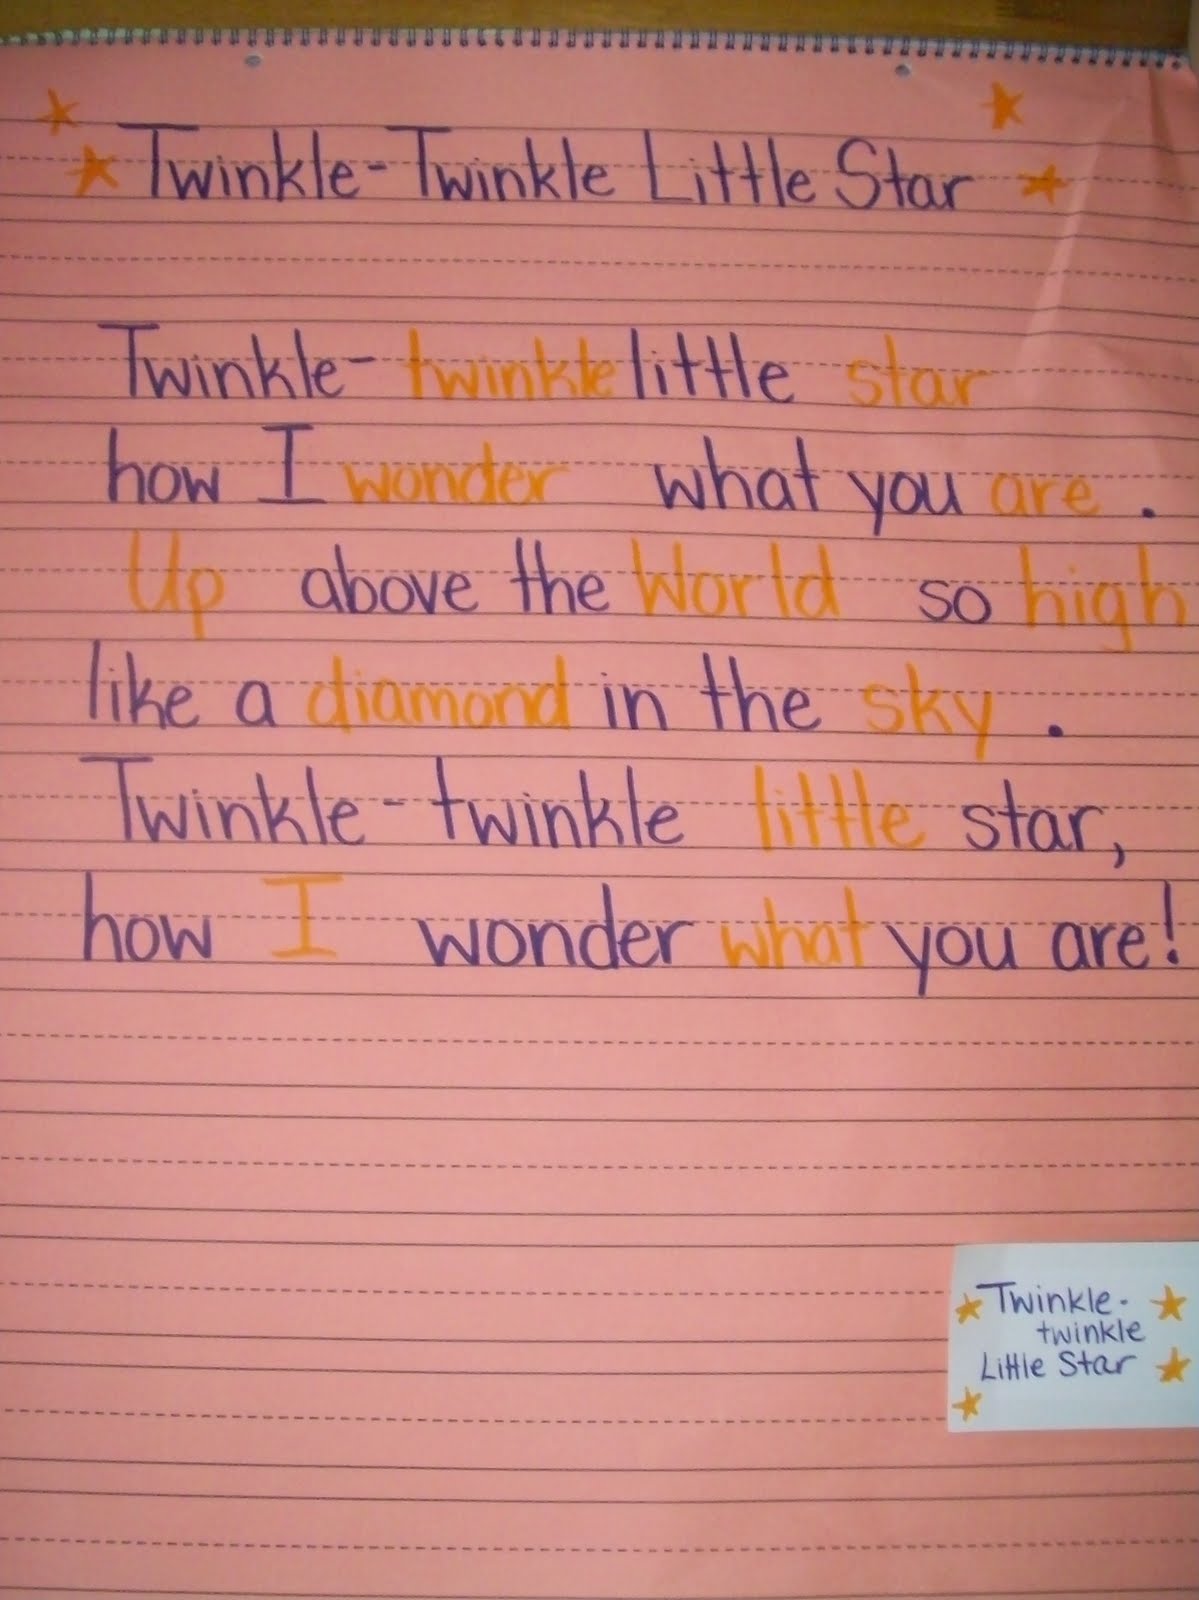 Twinkle-Twinkle Little Star
Twinkle- twinkle little star
how I wonder what you are .
Up above the World so high
like a diamond in the sky .
Twinkle-twinkle little star,
how I wonder what you are!
Twinkle-
twinkle
Little Star